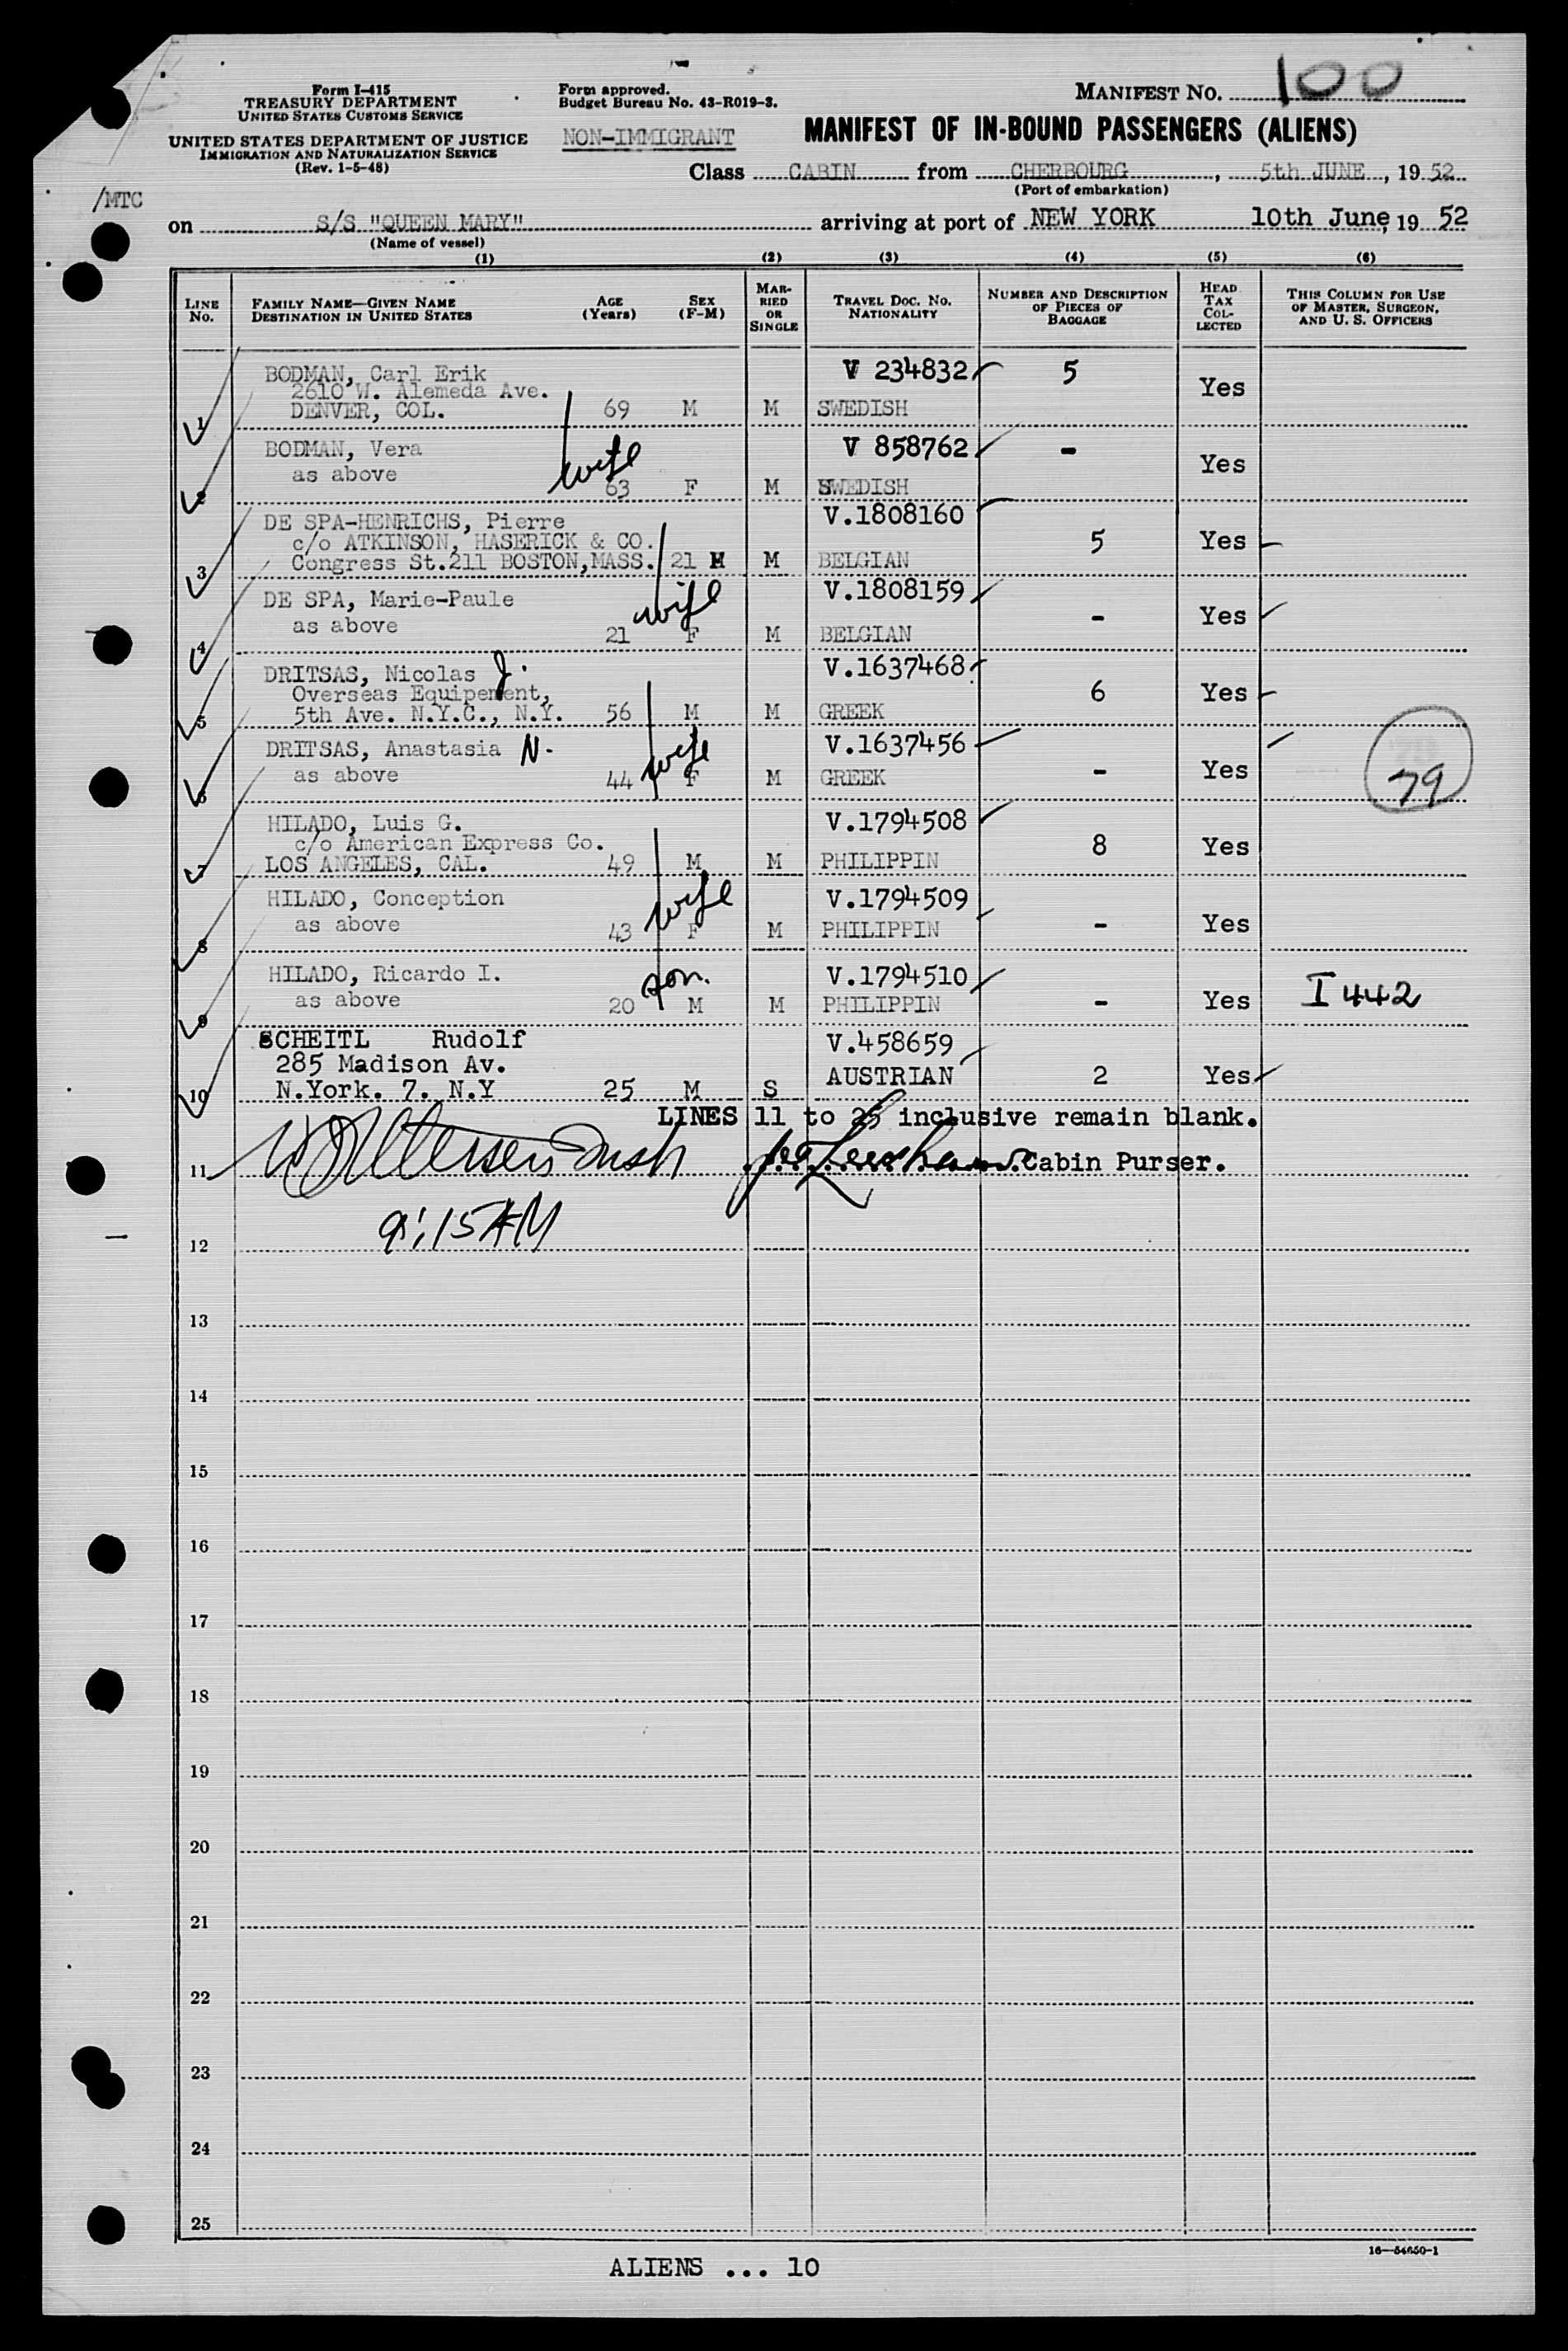 Form I-415
TREASURY DEPARTMENT
UNITED STATES CUSTOMS SERVICE
UNITED STATES DEPARTMENT OF JUSTICE
IMMIGRATION AND NATURALIZATION SERVICE
(Rev. 1-5-48)
Form approved.
Budget Bureau No. 43-R019-3.
NON-IMMIGRANT
MANIFEST NO. 100
MANIFEST OF IN-BOUND PASSENGERS (ALIENS)
Class CABIN from CHERBOURG, 5th JUNE, 19 52
(Port of embarkation)
/MTC
on S/S "QUEEN MARY" arriving at port of NEW YORK 10th June, 19 52
(Name of vessel)
(1) (2) (3) (4) (5) (6)
LINE NO.
FAMILY NAME—GIVEN NAME
DESTINATION IN UNITED STATES
AGE (Years)
SEX (F-M)
MARRIED OR SINGLE
TRAVEL DOC. NO.
NATIONALITY
NUMBER AND DESCRIPTION OF PIECES OF BAGGAGE
HEAD TAX COLLECTED
THIS COLUMN FOR USE OF MASTER, SURGEON, AND U. S. OFFICERS
BODMAN, Carl Erik V 234832 5
2610 W. Alemeda Ave. Yes
1 DENVER, COL. 69 M M SWEDISH
BODMAN, Vera V 858762 -
as above wife Yes
2 63 F M SWEDISH
DE SPA-HENRICHS, Pierre V.1808160
c/o ATKINSON, HASERICK & CO. 5 Yes
3 Congress St.211 BOSTON,MASS. 21 M M BELGIAN
DE SPA, Marie-Paule wife V.1808159
as above - Yes
4 21 F M BELGIAN
DRITSAS, Nicolas J. V.1637468
Overseas Equipement, 6 Yes
5 5th Ave. N.Y.C., N.Y. 56 M M GREEK
DRITSAS, Anastasia N. wife V.1637456
6 as above 44 F M GREEK - Yes
79
HILADO, Luis G. V.1794508
c/o American Express Co. 8 Yes
7 LOS ANGELES, CAL. 49 M M PHILIPPIN
HILADO, Conception wife V.1794509
8 as above 43 F M PHILIPPIN - Yes
HILADO, Ricardo I. son. V.1794510
9 as above 20 M M PHILIPPIN - Yes I 442
SCHEITL Rudolf V.458659
285 Madison Av. AUSTRIAN 2 Yes
10 N.York. 7. N.Y 25 M S
LINES 11 to 25 inclusive remain blank.
11 Cabin Purser.
9:15 AM
12
13
14
15
16
17
18
19
20
21
22
23
24
25
16—54650-1
ALIENS ... 10